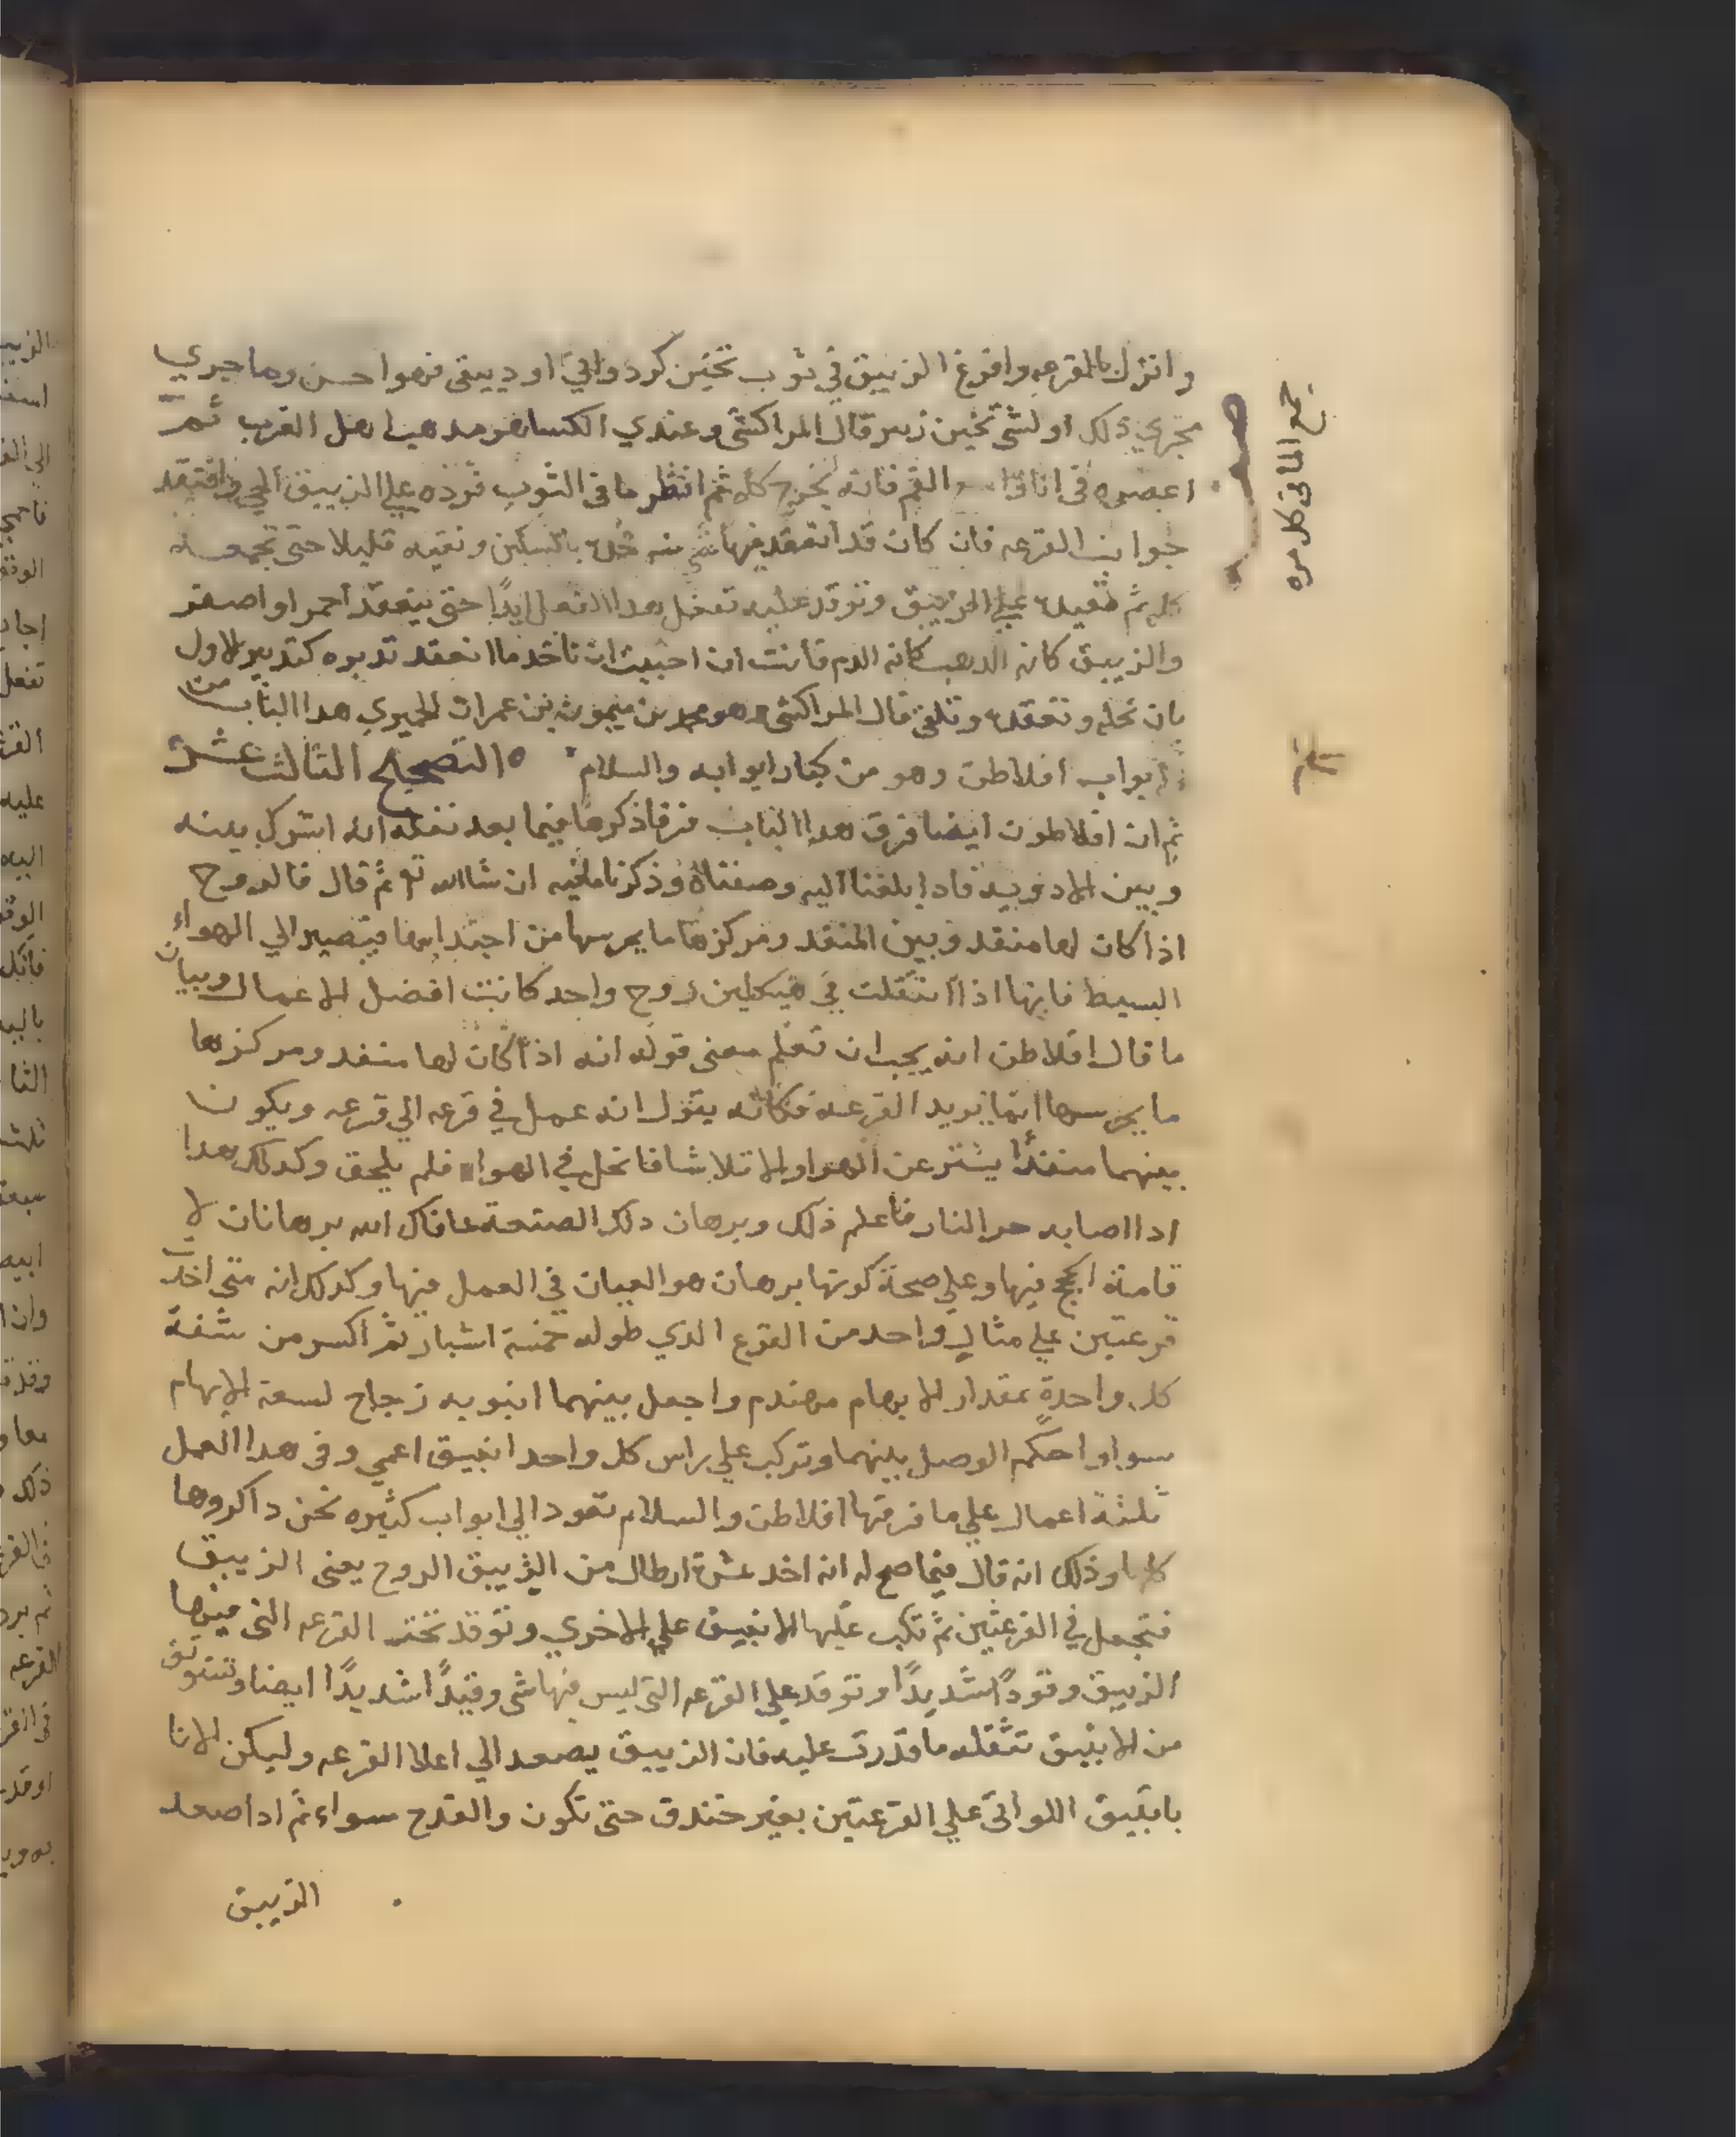 وانزل بالقرعه وافرغ الزيبق في ثوب تخين كرد واني او دبيقى فهوا حسن وما جري
مجري ذلك او لشى تخين زبير قال المراكشى وعندي الكسا هو مدهب اهل الغرب ثم
اعصره فى انا فانه يخرج كله ثم انظر ما فى الثوب فرده علي الزيبق الحي وافتقد
جوانب القرعه فان كان قد انعقد فيها شى منه خده بالسكين ونقيه قليلا حتى تجمعه
كله ثم تعيده علي الزيبق وتوقد عليه تفعل هدا الفعل ابدًا حتى ينعقد احمر او اصفر
والزيبق كانه الدهب كانه الدم فانت ان احببت ان تاخد ما انعقد تدبره كتدبير الاول
بان تحله وتعقده وتلقى قال المراكشى وهو محمد بن ميمون بن عمران الحميري هدا الباب من
ابواب افلاطن وهو من كبار ابوابه والسلام ٥ التصحيح الثالث عشر
ثم ان افلاطون ايضا فرق هدا الباب فرقا ذكرها فيما بعد نفكه انه اشرك بينه
وبين الادويه فادا بلغنا اليه وصفناه وذكرنا ما فيه ان شا الله تع ثم قال فالروح
اذا كان لها منفد وبين المنفد ومركزها ما يحرسها من اجتدابها فيتصير الي الهواء
البسيط فانها اذا انتقلت في هيكلين روح واحد كانت افضل الاعمال وبيان
ما قال افلاطن انه يجب ان تعلم معنى قوله انه اذا كان لها منفد ومركزها
ما يحرسها انما يريد القرعه فكانه يقول انه عمل في قرعه الي قرعه ويكون
بينهما منفدًا يستر عن الهوا والا تلاشا فانحل في الهوا فلم يلحق وكدلك هدا
ادا اصابه حر النار فاعلم ذلك وبرهان دلك الصنعة عافاك الله برهانان لا
قامة الحجج فيها وعلي صحة كونها برهان هو العيان في العمل فيها وكدلك انه متى اخدت
قرعتين علي مثال واحد من القرع الدي طوله خمسة اشبار ثم اكسر من شفة
كل واحدة بمقدار الابهام مهندم واجعل بينهما انبوبه زجاج لسعة الابهام
سوا واحكم الوصل بينهما وتركب علي راس كل واحد انبيق اعمي وفى هدا العمل
ثلثة اعمال علي ما فرقها افلاطن والسلام تعود الي ابواب كثيره نحن داكروها
كلها وذلك انه قال فيما صح له انه اخد عشرة ارطال من الزيبق الروح يعنى الزيبق
فتجعل في القرعتين ثم تكب عليها الانبيق علي الاخري وتوقد تحت القرعه التى فيها
الزيبق وقودًا شديدًا وتوقد علي القرعه التى ليس فيها شى وقيدًا شديدًا ايضا وتتوثق
من الانبيق تثقله ما قدرت عليه فان الزيبق يصعد الي اعلا القرعه وليكن الانا
بانبيق اللواتى علي القرعتين بغير خندق حتى تكون والقدح سواء ثم ادا صعد
الزيبق
جمع الما فى كل مره